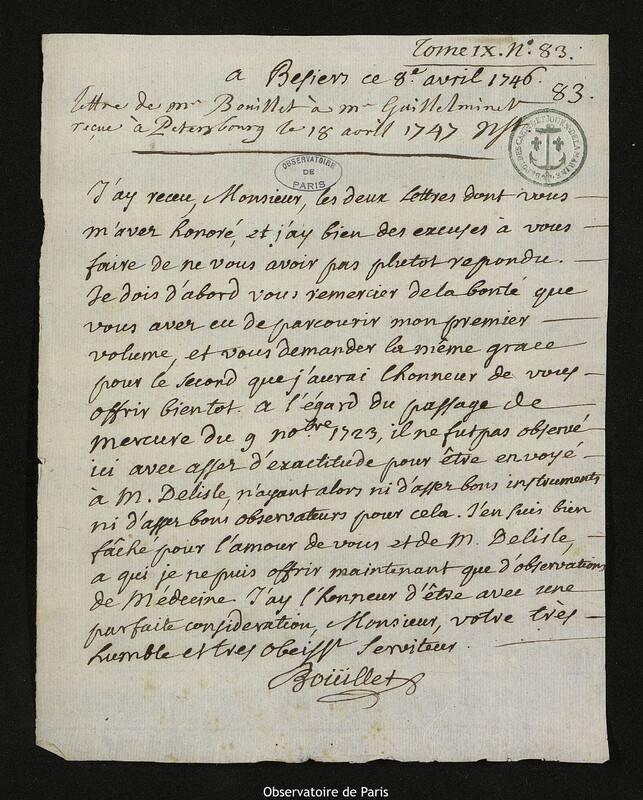 Tome IX. N.° 83.
a Besiers ce 8.e avril 1746.
83.
lettre de mr Bouillet à mr Guillelminet
reçue à Petersbourg le 18 avril 1747
OBSERVATOIRE
DE
PARIS
J'ay receu, Monsieur, les deux lettres dont vous
m'avez honoré, et j'ay bien des excuses à vous
faire de ne vous avoir pas plutot repondu.
Je dois d'abord vous remercier dela bonté que
vous avez eu de parcourir mon premier
volume, et vous demander la même grace
pour le second que j'aurai l'honneur de vous
offrir bientot. a l'égard du passage de
mercure du 9 nobre 1723, il ne fut pas observé
ici avec assez d'exactitude pour être envoyé
à M. Delisle, n'ayant alors ni d'assez bons instruments
ni d'assez bons observateurs pour cela. J'en suis bien
fâché pour l'amour de vous et de M. Delisle,
a qui je ne puis offrir maintenant que d'observations
de Médecine. J'ay l'honneur d'être avec une
parfaite consideration, Monsieur, votre tres
humble et tres obeisst serviteur.
Boüillet
Observatoire de Paris